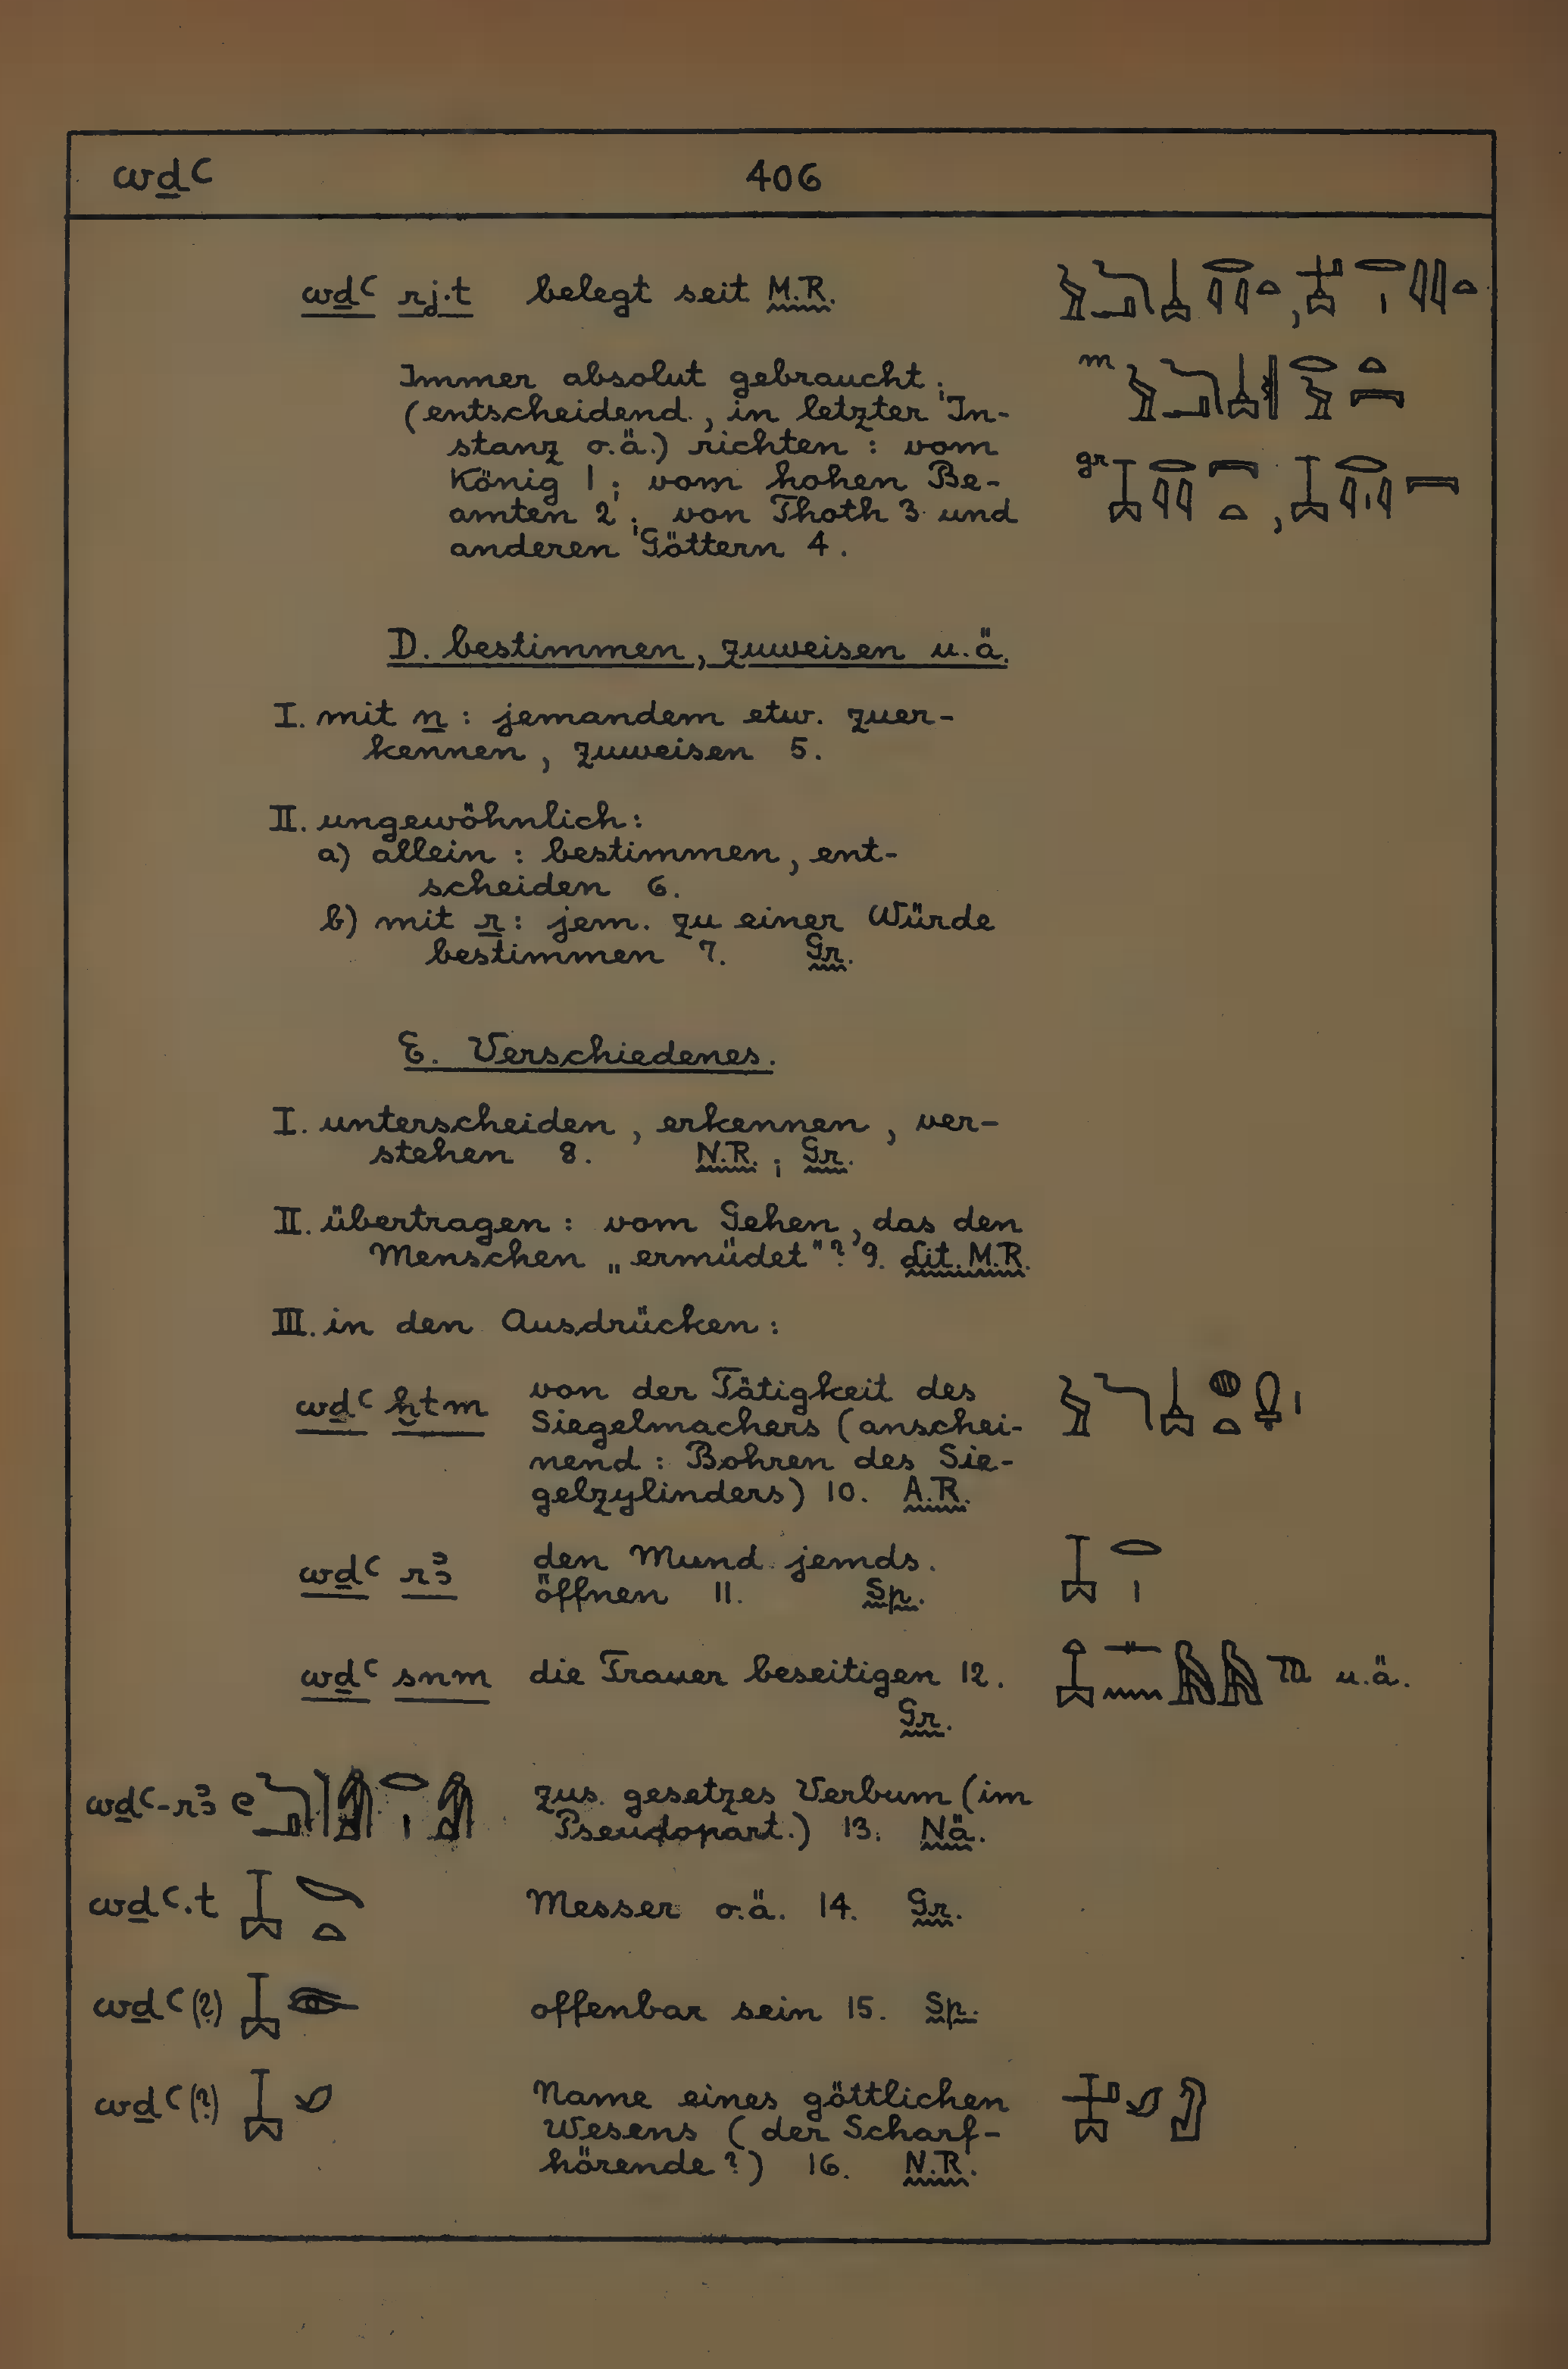 wḏꜥ 406
wḏꜥ rj.t belegt seit M.R.
Immer absolut gebraucht; m
(entscheidend, in letzter In-
stanz o.ä.) richten : vom
König 1; vom hohen Be- gr
amten 2; von Thoth 3 und
anderen Göttern 4.
D. bestimmen, zuweisen u.ä.
I. mit n : jemandem etw. zuer-
kennen, zuweisen 5.
II. ungewöhnlich:
a) allein : bestimmen, ent-
scheiden 6.
b) mit r : jem. zu einer Würde
bestimmen 7. Gr.
E. Verschiedenes.
I. unterscheiden, erkennen, ver-
stehen 8. N.R.; Gr.
II. übertragen : vom Gehen, das den
Menschen „ermüdet"? 9. Lit. M.R.
III. in den Ausdrücken :
wḏꜥ ḫtm von der Tätigkeit des
Siegelmachers (anschei-
nend : Bohren des Sie-
gelzylinders) 10. A.R.
wḏꜥ rꜣ den Mund jemds.
öffnen 11. Sp.
wḏꜥ snm die Trauer beseitigen 12. u.ä.
Gr.
wḏꜥ-rꜣ zus. gesetzes Verbum (im
Pseudopart.) 13. Nä.
wḏꜥ.t Messer o.ä. 14. Gr.
wḏꜥ (?) offenbar sein 15. Sp.
wḏꜥ (?) Name eines göttlichen
Wesens (der Scharf-
hörende?) 16. N.R.